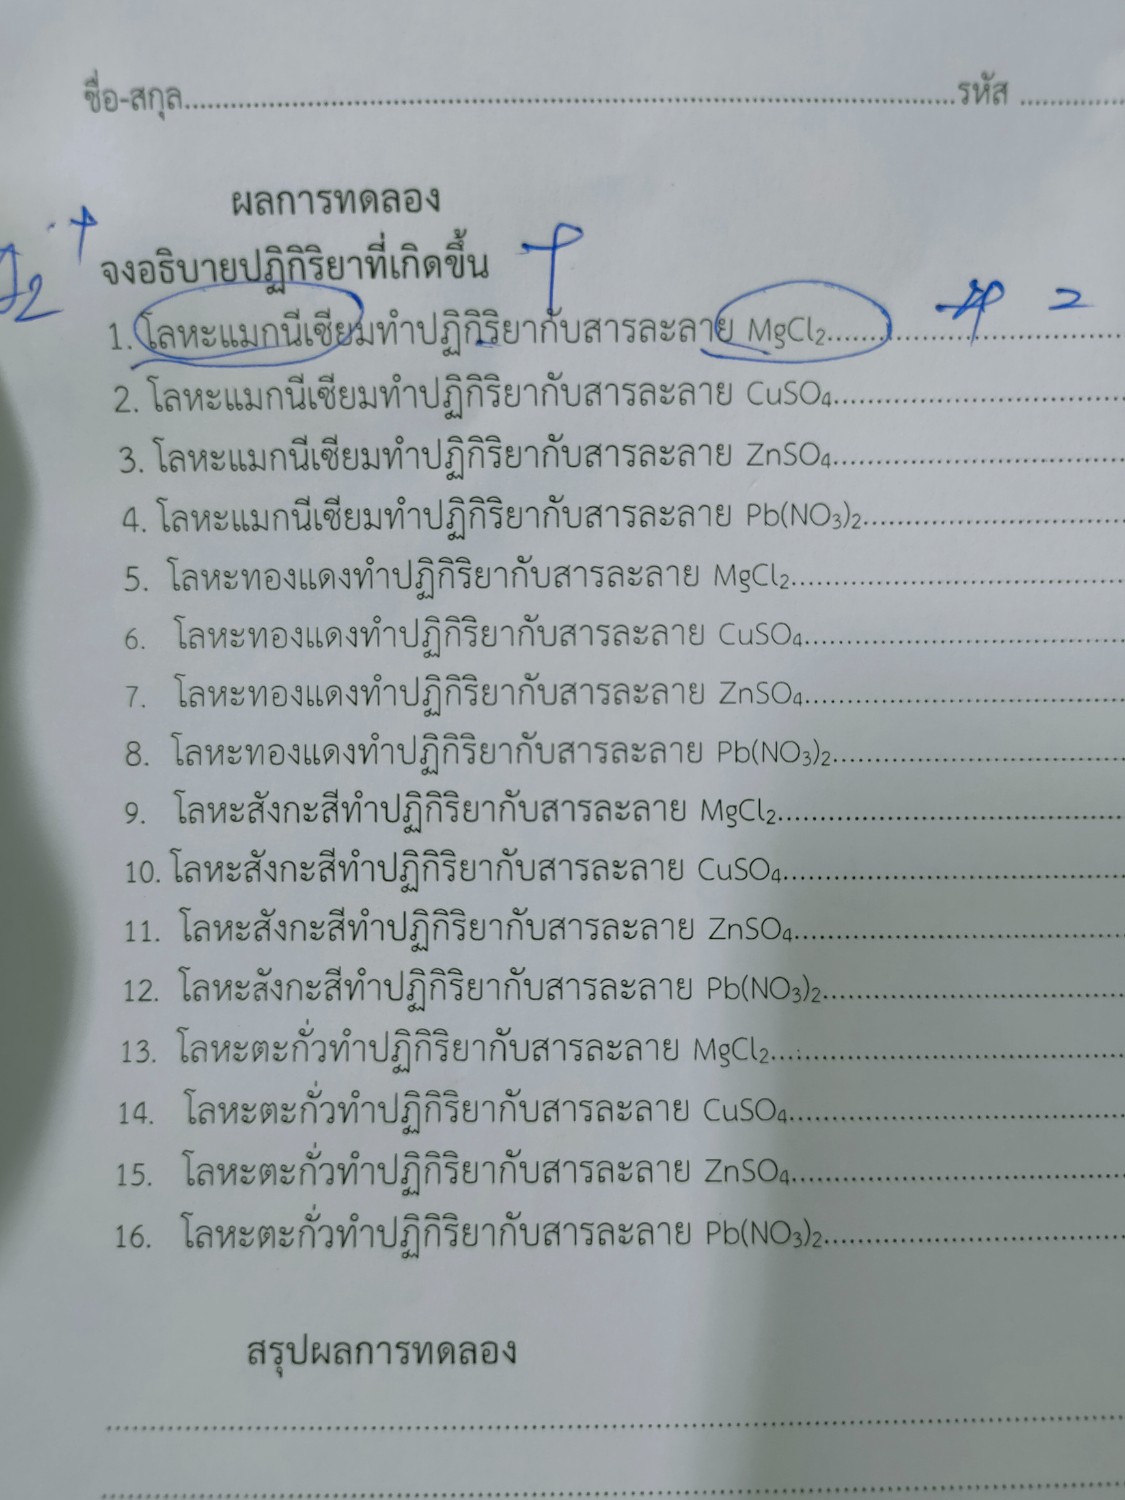 ชื่อ-สกุล..........................................................................................รหัส ............
ผลการทดลอง
จงอธิบายปฏิกิริยาที่เกิดขึ้น
1. โลหะแมกนีเซียมทำปฏิกิริยากับสารละลาย MgCl₂....................................
2. โลหะแมกนีเซียมทำปฏิกิริยากับสารละลาย CuSO₄....................................
3. โลหะแมกนีเซียมทำปฏิกิริยากับสารละลาย ZnSO₄....................................
4. โลหะแมกนีเซียมทำปฏิกิริยากับสารละลาย Pb(NO₃)₂................................
5. โลหะทองแดงทำปฏิกิริยากับสารละลาย MgCl₂.........................................
6. โลหะทองแดงทำปฏิกิริยากับสารละลาย CuSO₄........................................
7. โลหะทองแดงทำปฏิกิริยากับสารละลาย ZnSO₄........................................
8. โลหะทองแดงทำปฏิกิริยากับสารละลาย Pb(NO₃)₂....................................
9. โลหะสังกะสีทำปฏิกิริยากับสารละลาย MgCl₂...........................................
10. โลหะสังกะสีทำปฏิกิริยากับสารละลาย CuSO₄..........................................
11. โลหะสังกะสีทำปฏิกิริยากับสารละลาย ZnSO₄.........................................
12. โลหะสังกะสีทำปฏิกิริยากับสารละลาย Pb(NO₃)₂.....................................
13. โลหะตะกั่วทำปฏิกิริยากับสารละลาย MgCl₂...........................................
14. โลหะตะกั่วทำปฏิกิริยากับสารละลาย CuSO₄.........................................
15. โลหะตะกั่วทำปฏิกิริยากับสารละลาย ZnSO₄.........................................
16. โลหะตะกั่วทำปฏิกิริยากับสารละลาย Pb(NO₃)₂.....................................
สรุปผลการทดลอง